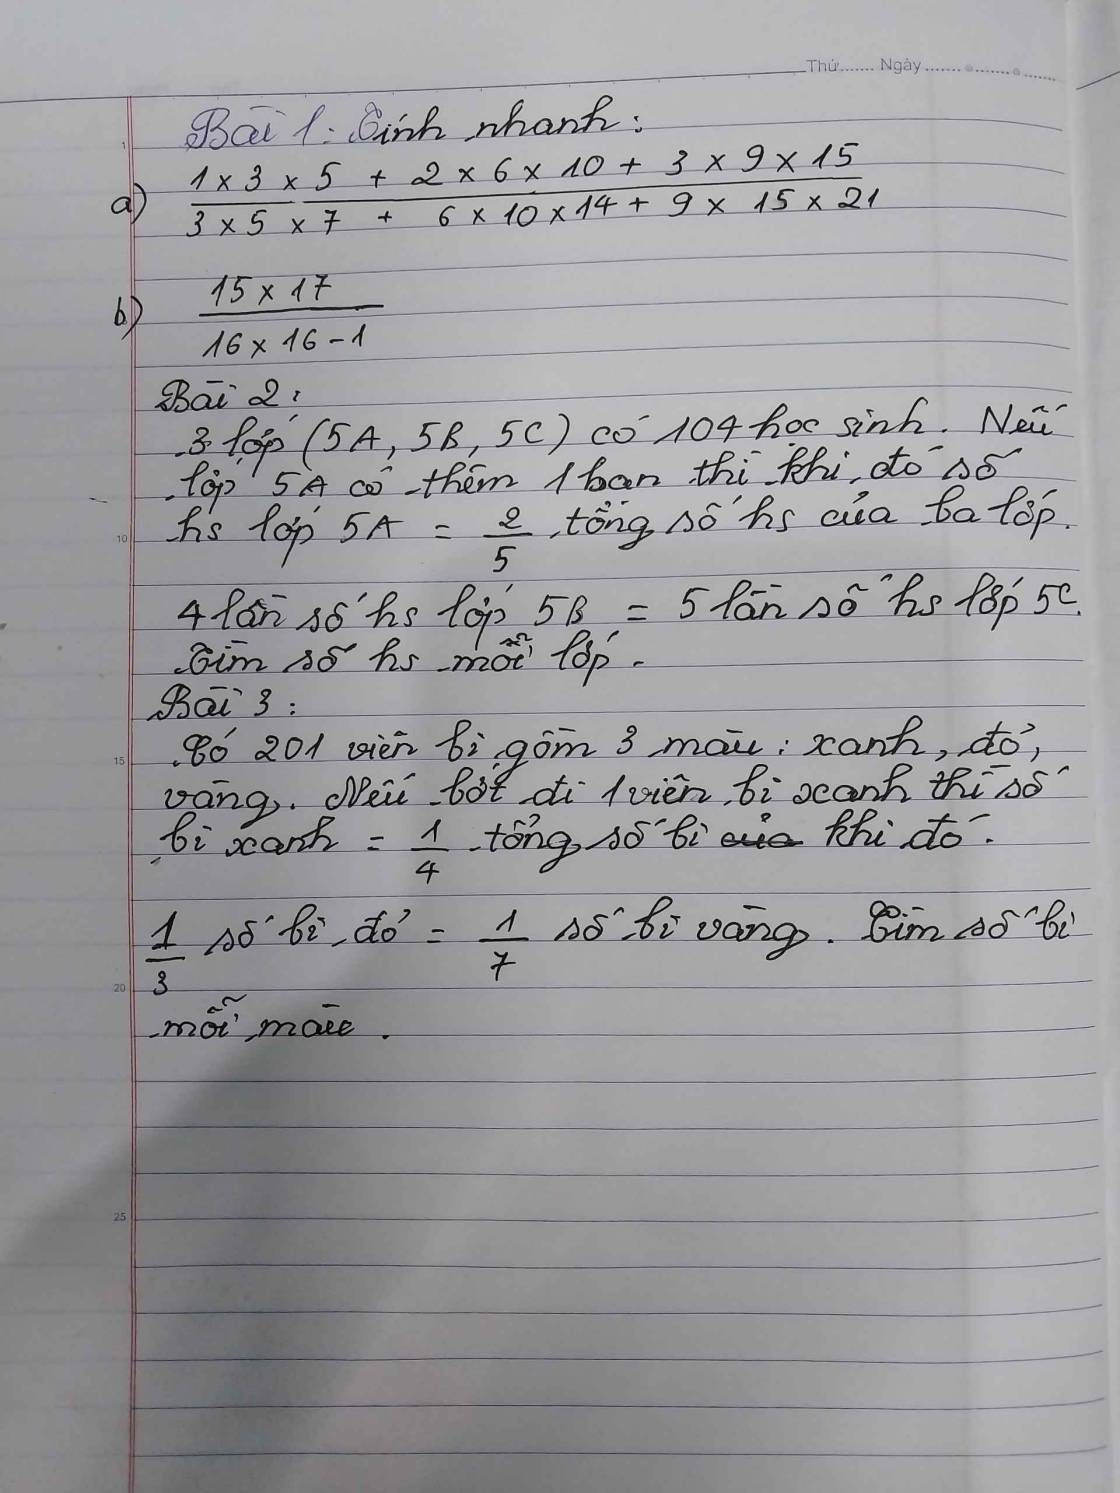 Thứ....... Ngày.....................
Bài 1: Tính nhanh:
1 x 3 x 5 + 2 x 6 x 10 + 3 x 9 x 15
a)
3 x 5 x 7 + 6 x 10 x 14 + 9 x 15 x 21
15 x 17
b)
16 x 16 - 1
Bài 2:
3 lớp (5A, 5B, 5C) có 104 học sinh. Nếu
lớp 5A có thêm 1 bạn thì khi đó số
hs lớp 5A = 2/5 tổng số hs của ba lớp.
10
4 lần số hs lớp 5B = 5 lần số hs lớp 5C.
Tìm số hs mỗi lớp.
Bài 3:
Có 201 viên bi gồm 3 màu: xanh, đỏ,
15
vàng. Nếu bớt đi 1 viên bi xanh thì số
bi xanh = 1/4 tổng số bi của khi đó.
1/3 số bi đỏ = 1/7 số bi vàng. Tìm số bi
20
mỗi màu.
25